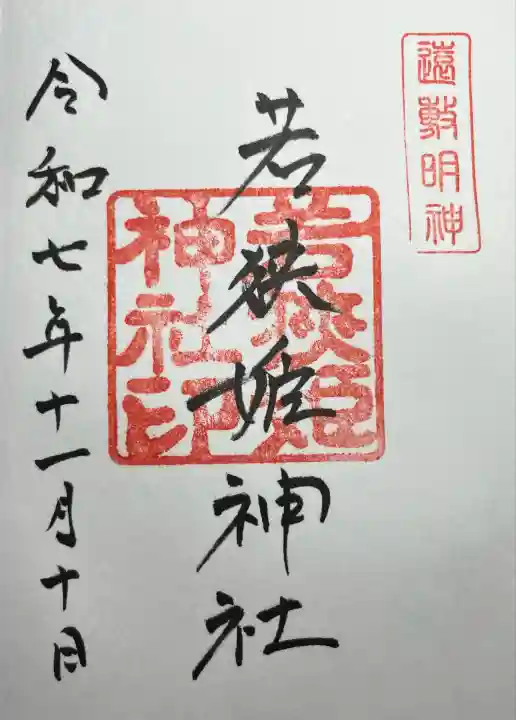 遠敷明神
若狭姫神社
若狭姫神社印
令和七年十一月十日